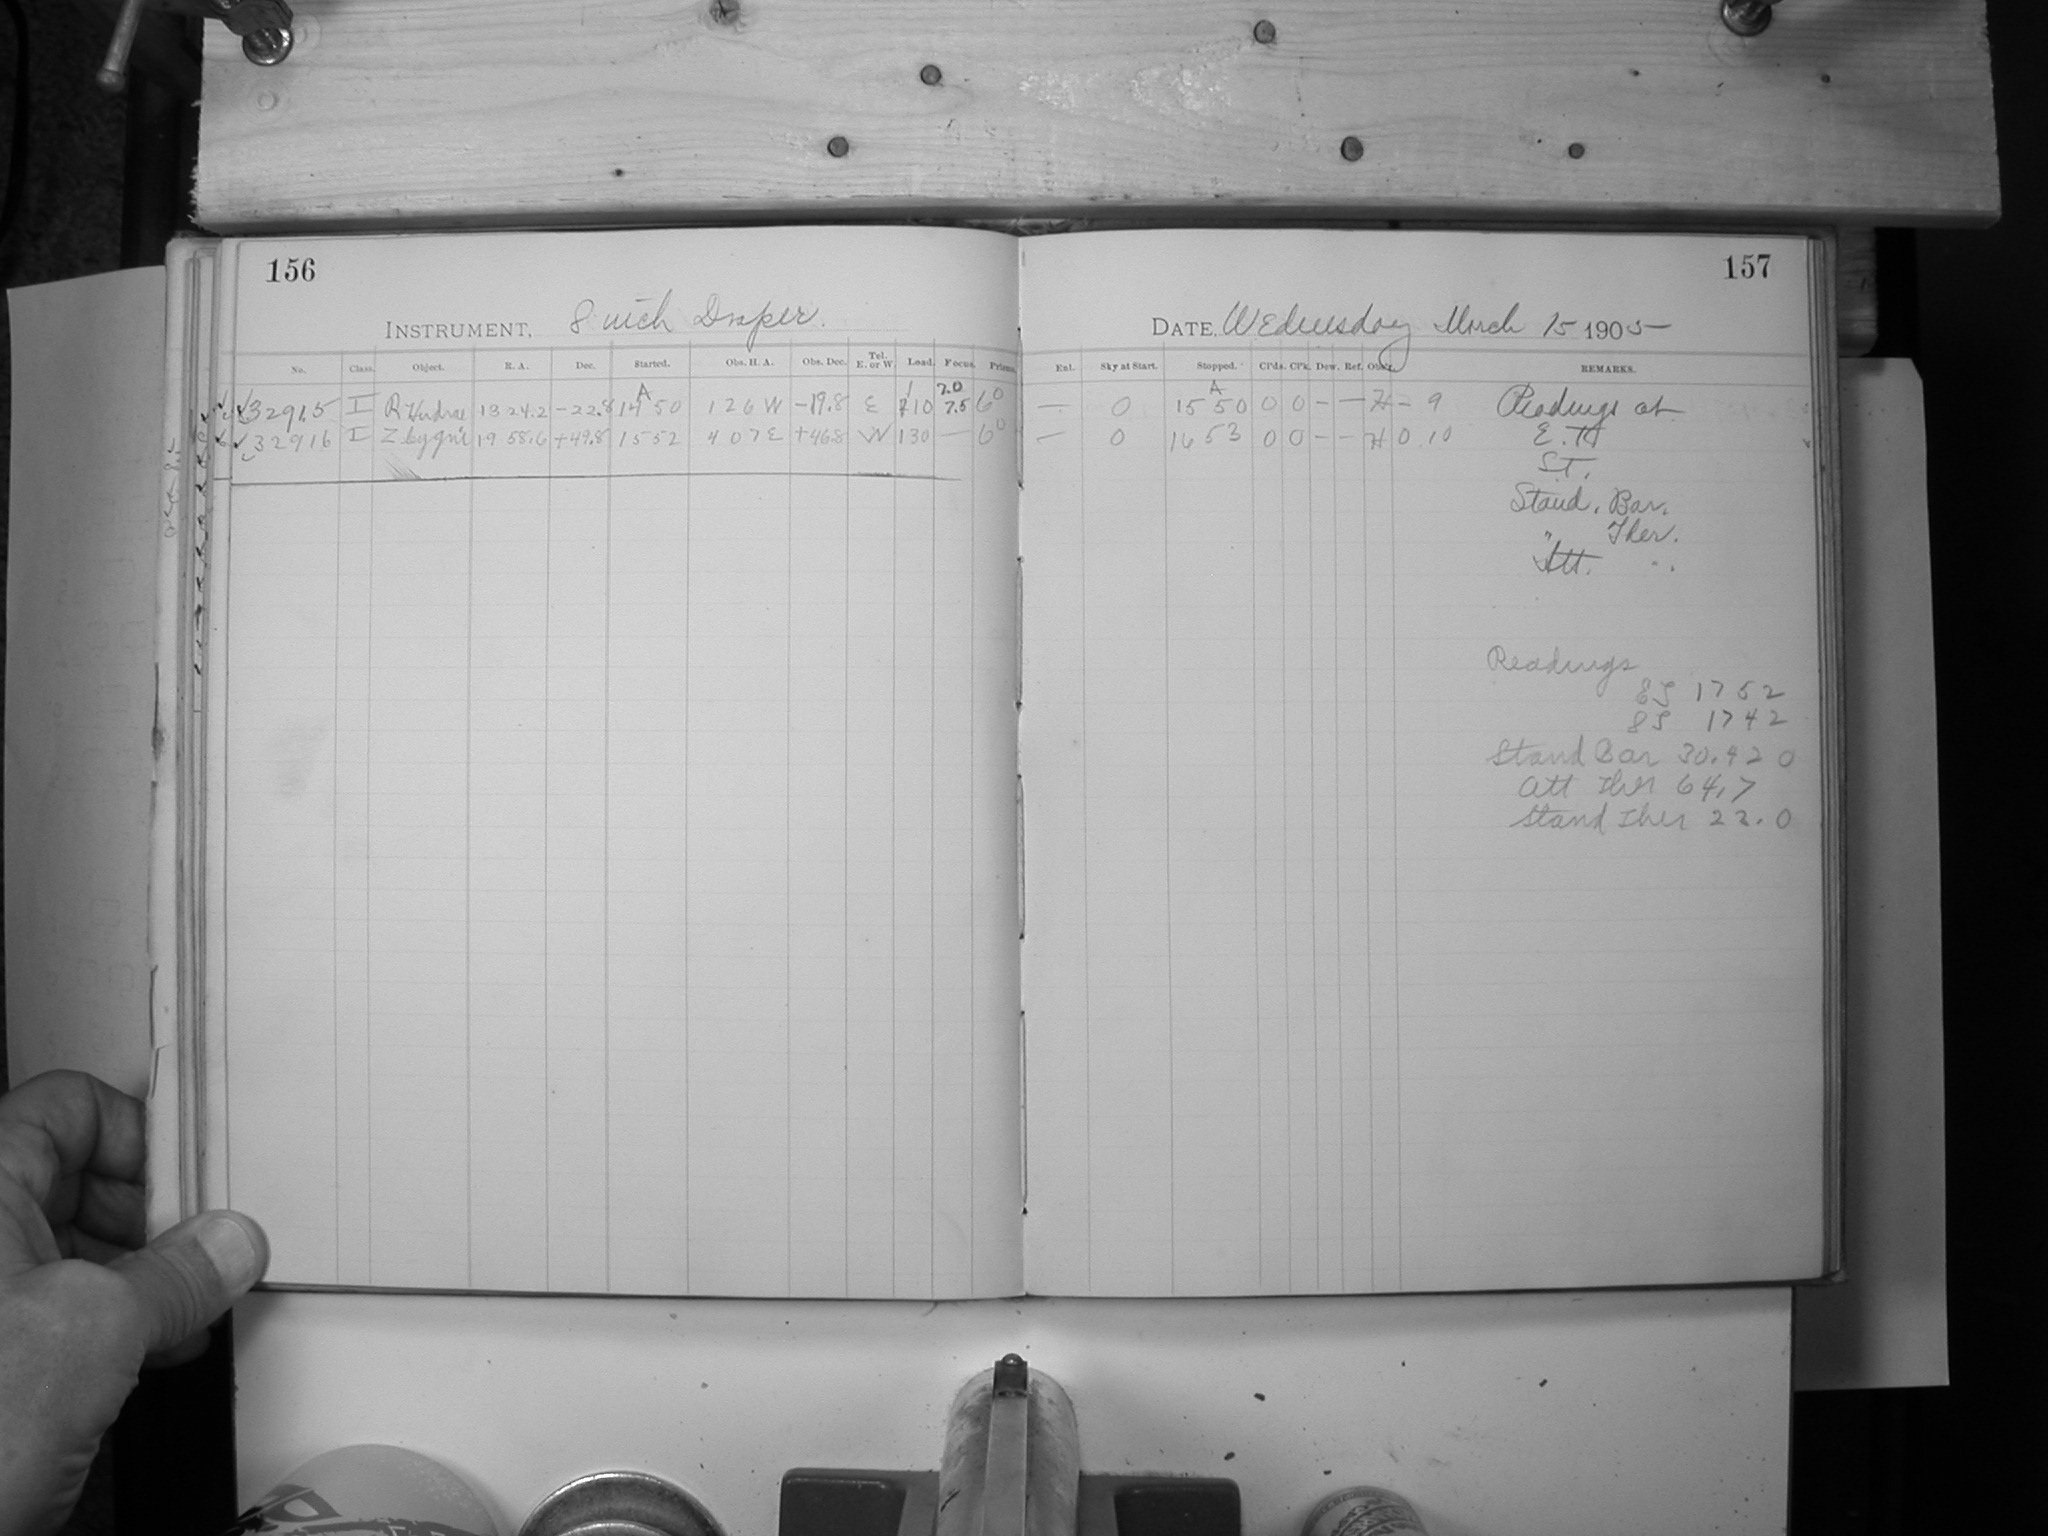 156
INSTRUMENT, 8 inch Draper.
No. Class. Object. R. A. Dec. Started. Obs. H. A. Obs. Dec. Tel. E. or W. Load. Focus. Prisms.
32915 I R Hydrae 13 24.2 -22.8 A 14 50 1 26 W -19.8 E 110 7.0 7.5 6°
32916 I Z Cygni 19 58.6 +49.8 15 52 4 07 E +46.8 W 130 — 6°
157
DATE, Wednesday March 15 1905
Ent. Sky at Start. Stopped. Cl'ds. Cl'k. Dew. Ref. Obs'r. REMARKS.
— 0 A 15 50 0 0 - - H - 9 Readings at
— 0 16 53 0 0 - - H 0.10 E. T.
S T.
Stand. Bar.
" Ther.
Att. "
Readings
ES 17 52
8S 17 42
Stand Bar 30.420
Att Ther 64.7
Stand Ther 22.0